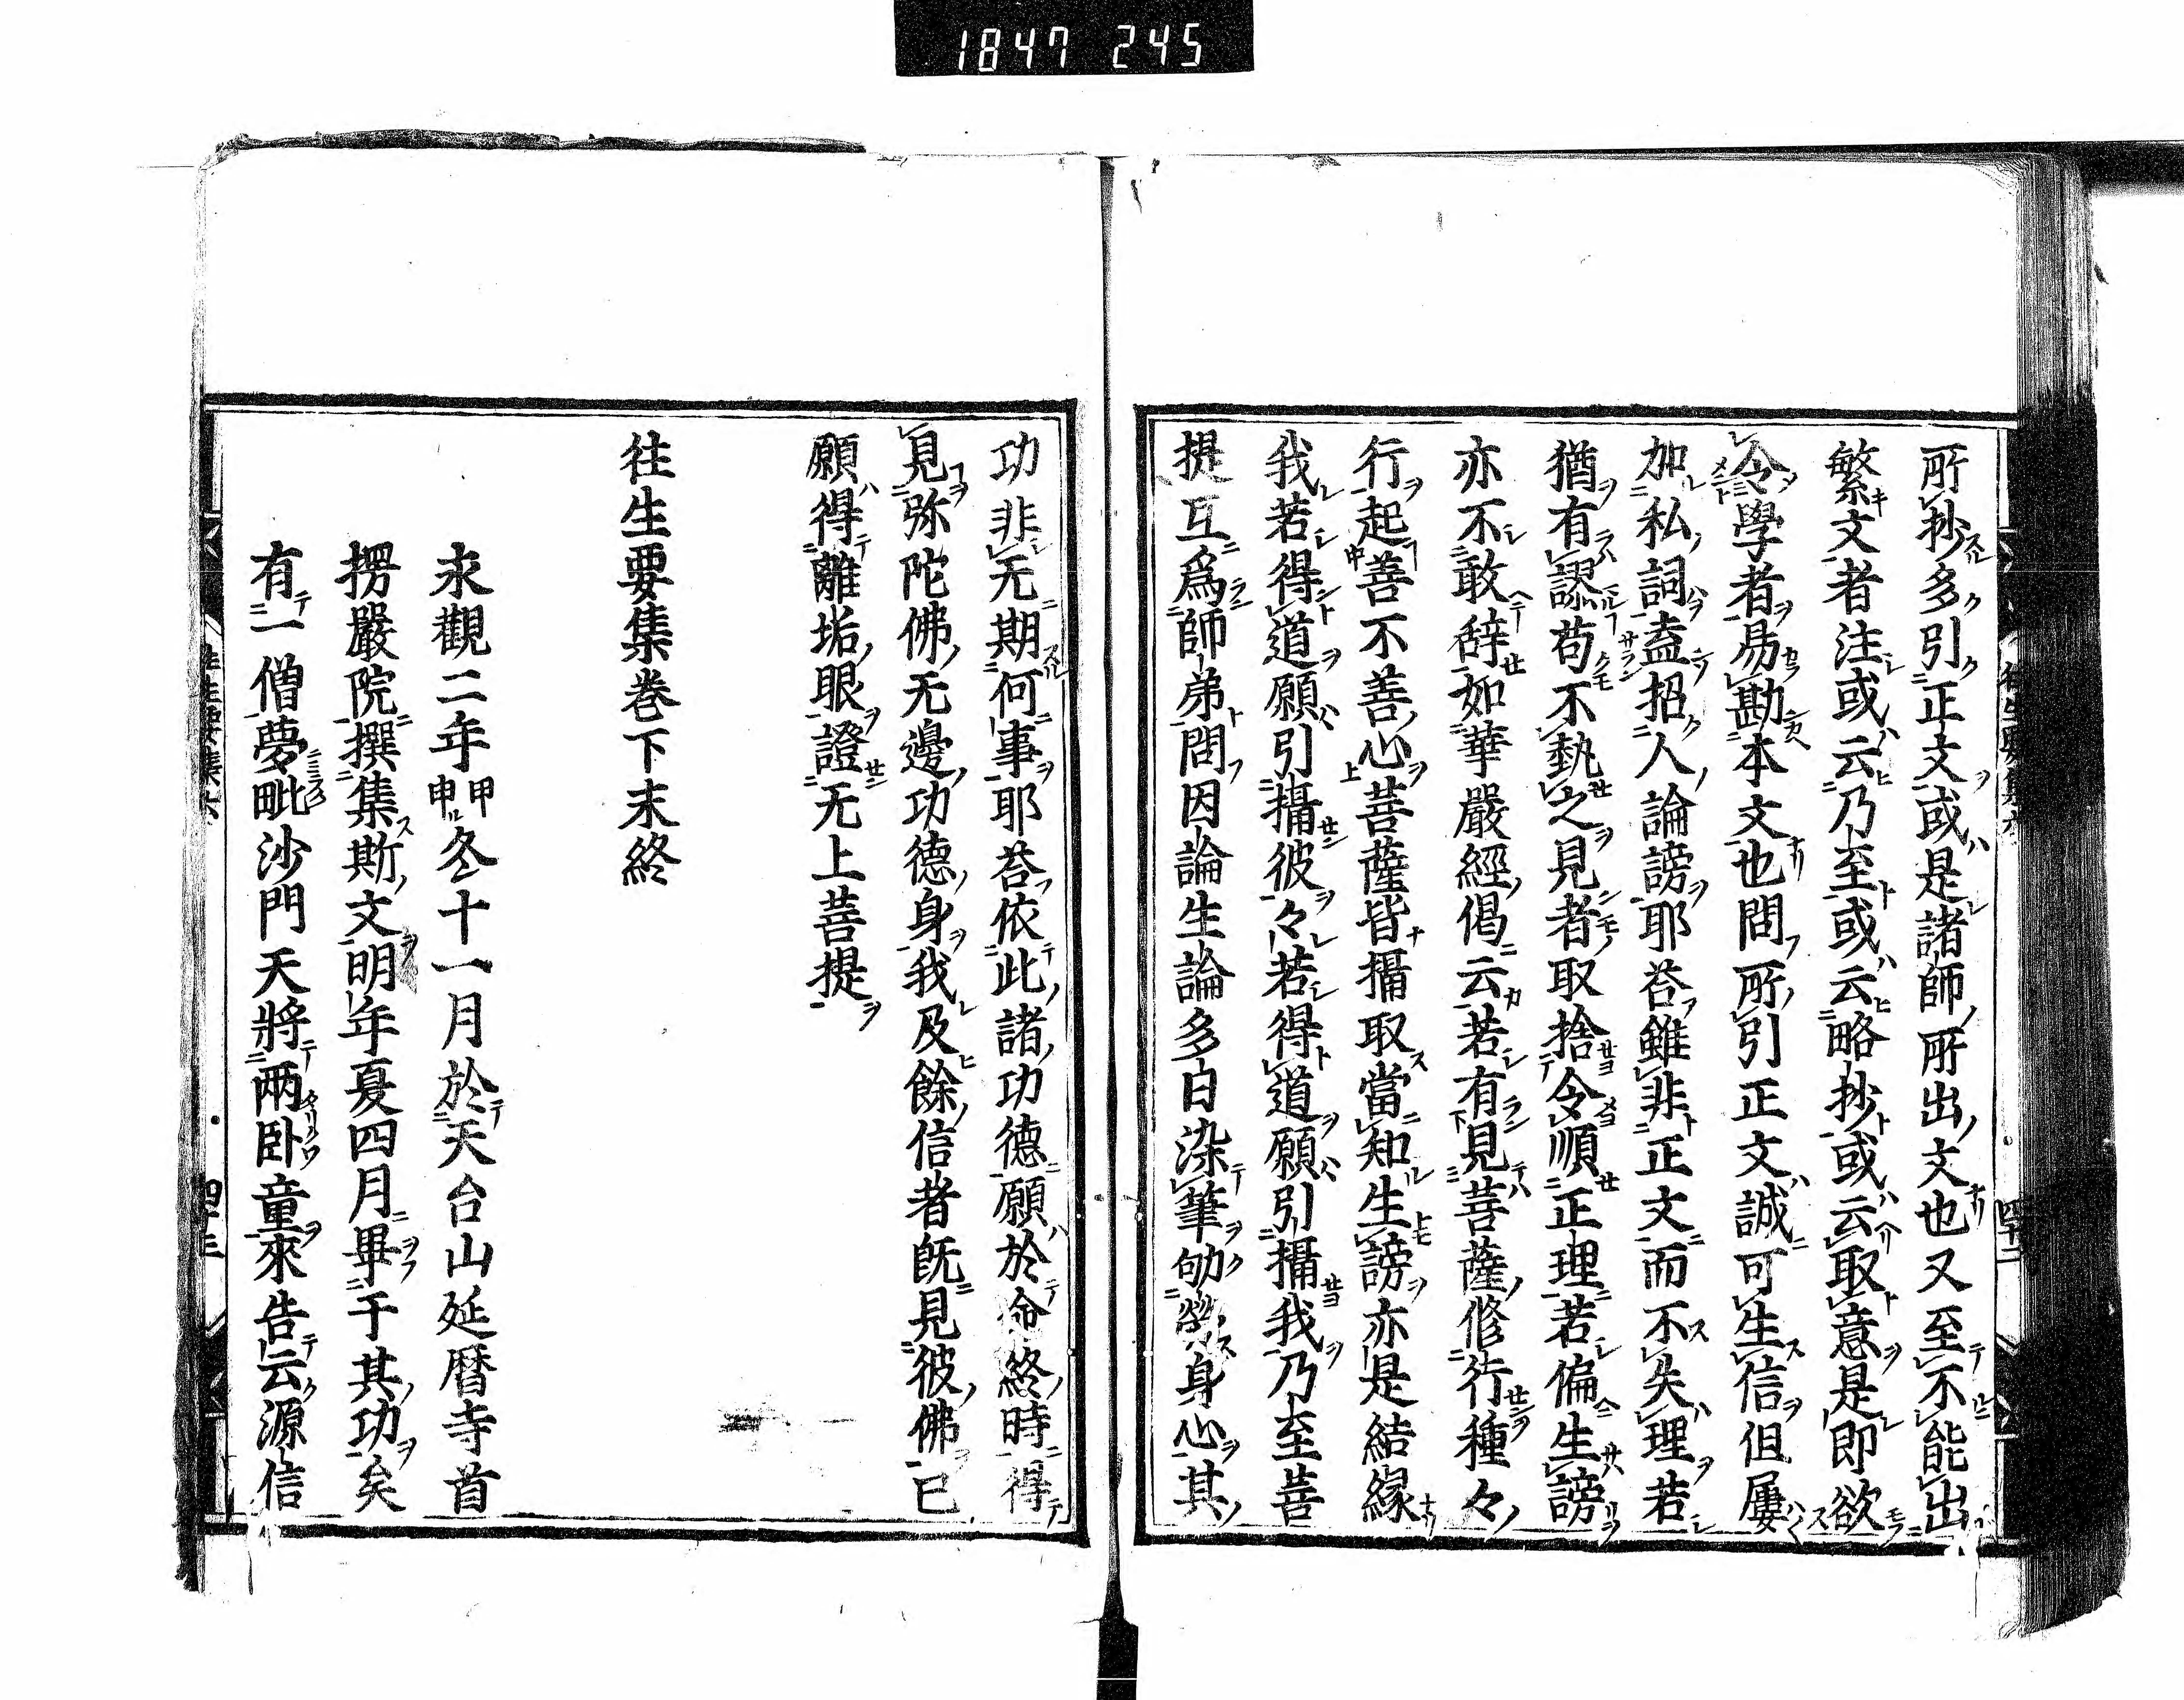 1847 245
所抄多引正文或是諸師所出文也又至不能出
繁文者注或云乃至或云略抄或云取意是即欲
令學者易勘本文也問所引正文誠可生信但屢
加私詞盍招人論謗耶荅雖非正文而不失理若
猶有謬苟不執之見者取捨令順正理若偏生謗
亦不敢辞如華嚴經偈云若有見菩薩修行種々
行起善不善心菩薩皆攝取當知生謗亦是結縁
我若得道願引攝彼々若得道願引攝我乃至菩
提互爲師弟問因論生論多日染筆劬勞身心其
功非无期何事耶荅依此諸功德願於命終時得
見弥陀佛无邊功德身我及餘信者既見彼佛已
願得離垢眼證无上菩提
往生要集巻下末終
永觀二年甲申冬十一月於天台山延暦寺首
楞嚴院撰集斯文明年夏四月畢于其功矣
有一僧夢毗沙門天將兩丱童來告云源信
往生要集六
四十三